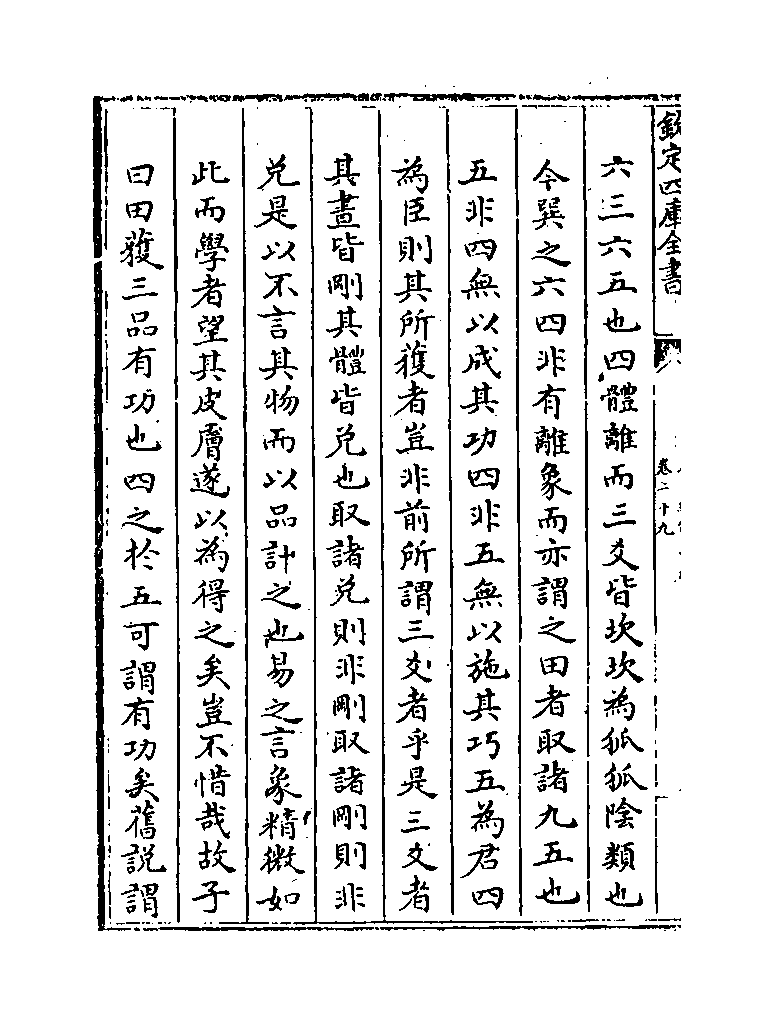 欽定四庫全書
卷二十九
六三六五也四體離而三爻皆坎坎為狐狐陰類也
今巽之六四非有離象而亦謂之田者取諸九五也
五非四無以成其功四非五無以施其巧五為君四
為臣則其所獲者豈非前所謂三爻者乎是三爻者
其畫皆剛其體皆兌也取諸兌則非剛取諸剛則非
兌是以不言其物而以品計之也易之言象精微如
此而學者望其皮膚遂以為得之矣豈不惜哉故子
曰田獲三品有功也四之於五可謂有功矣舊説謂